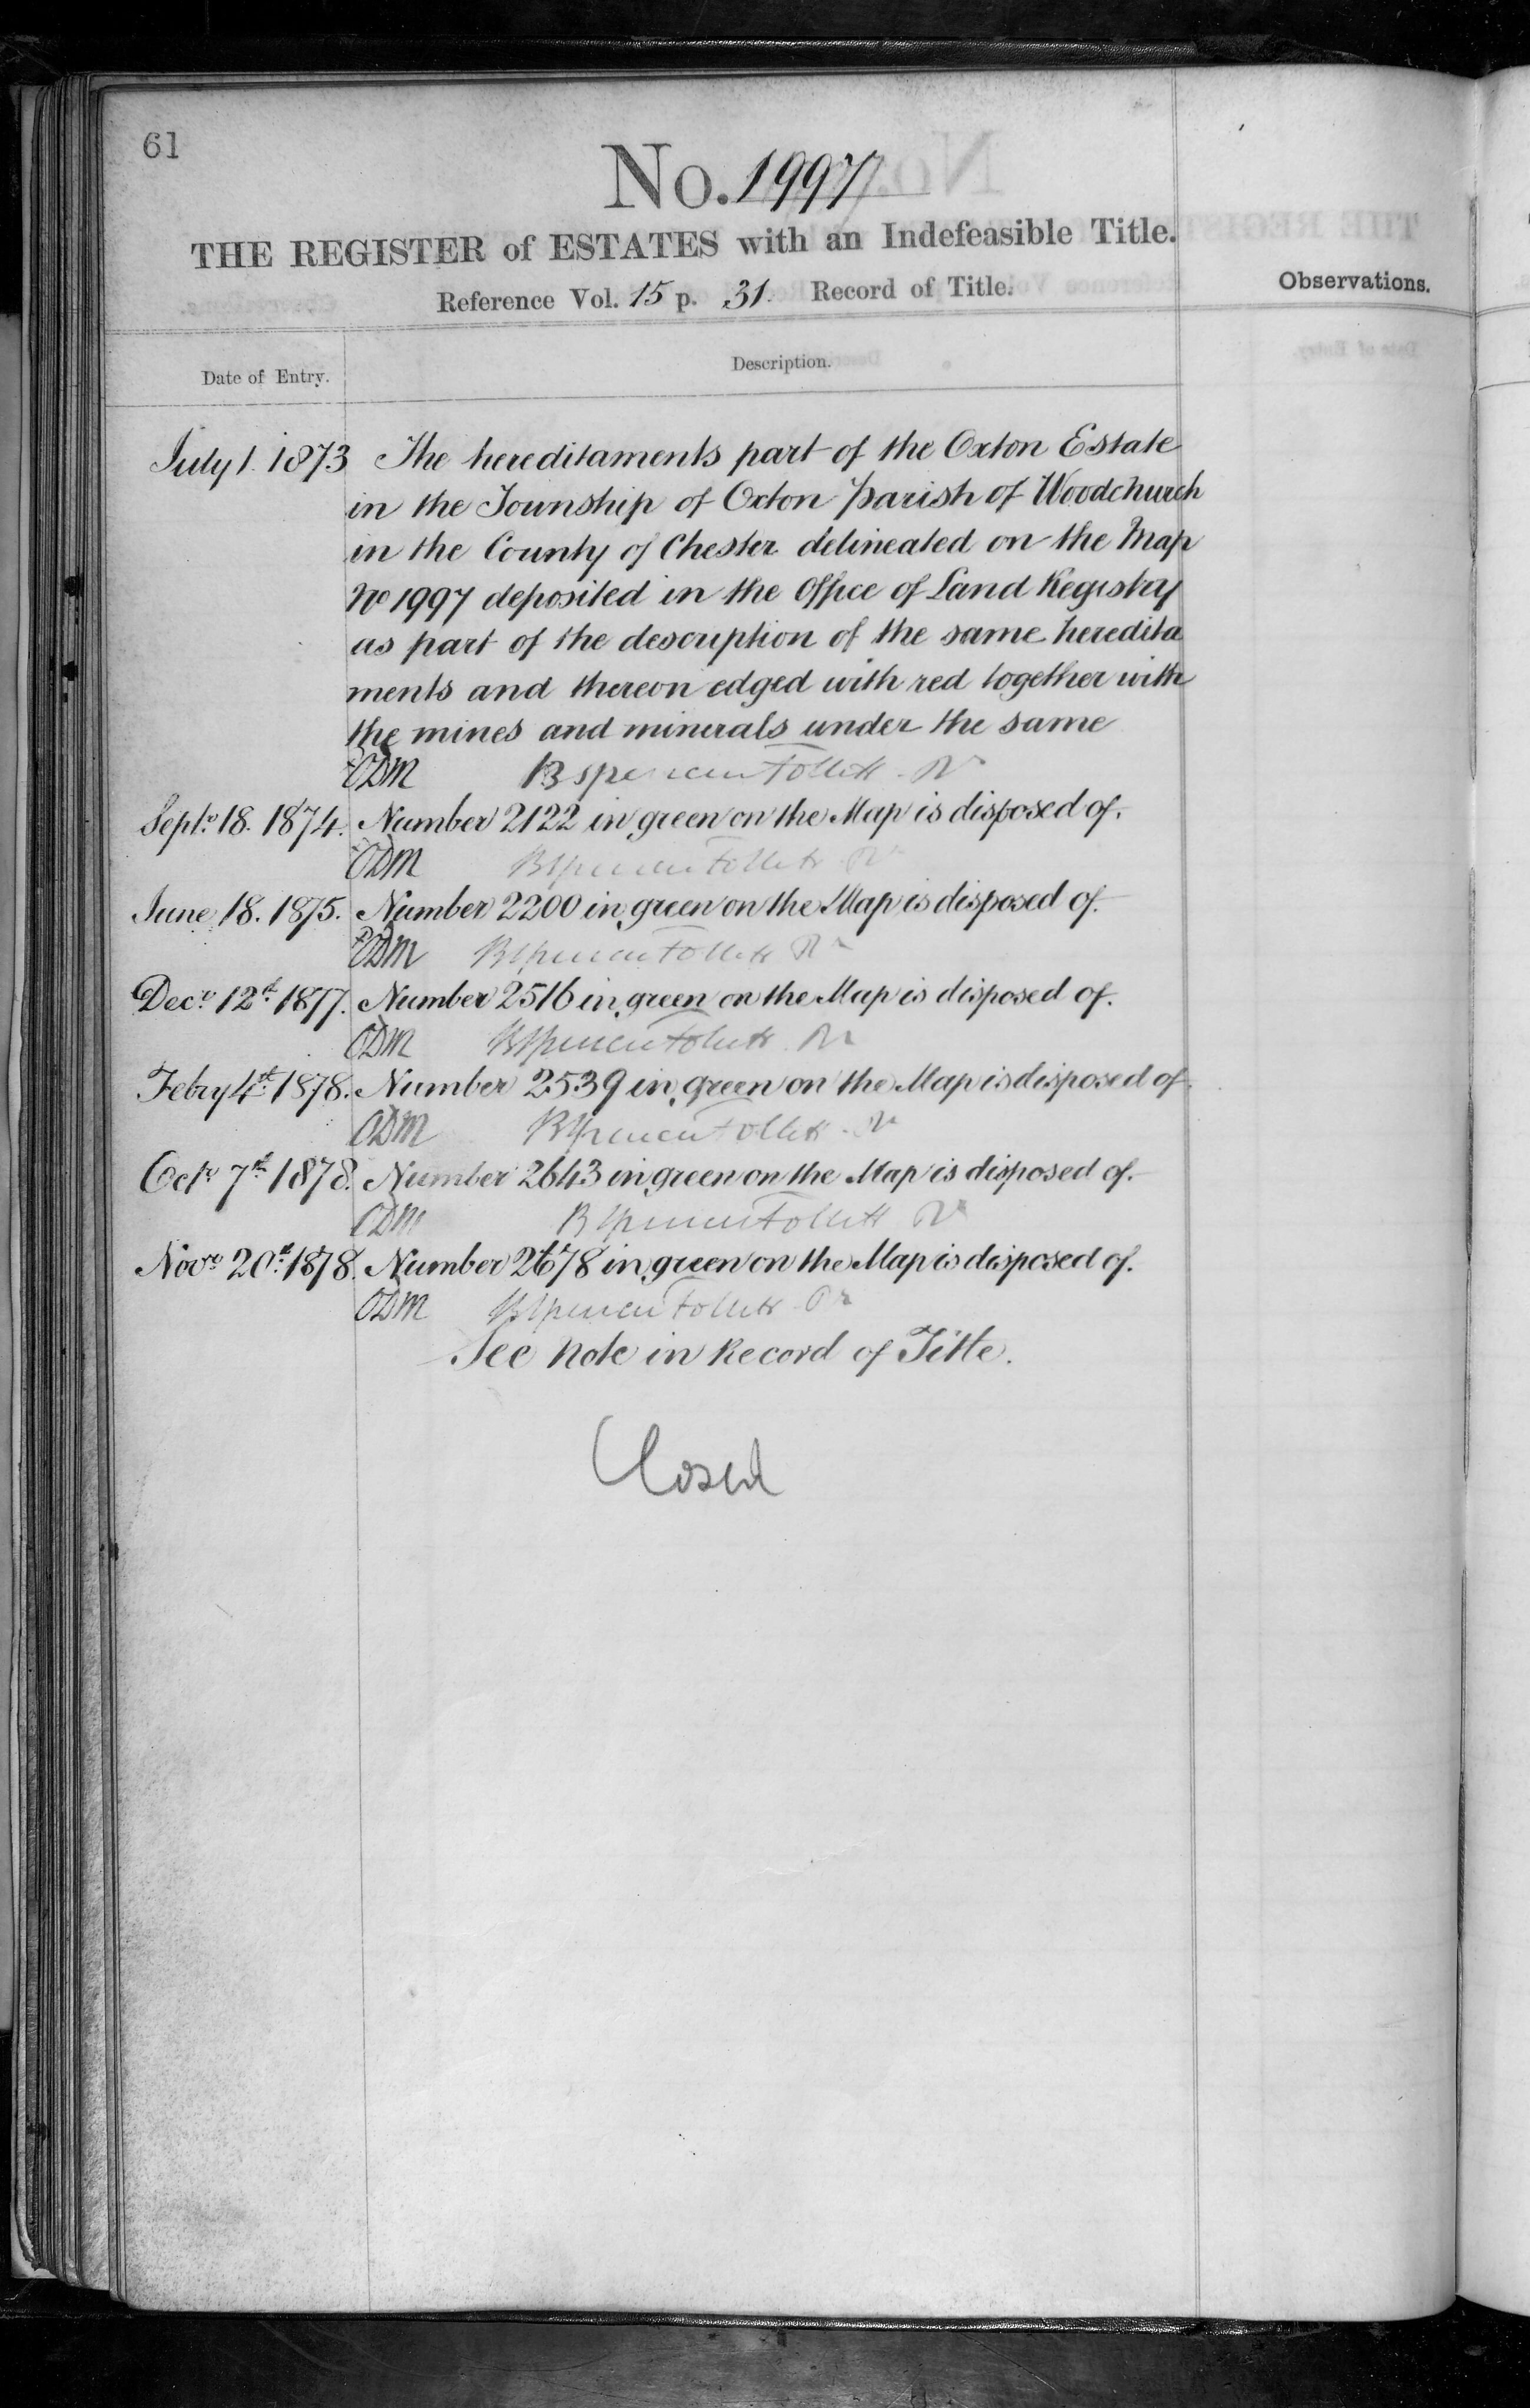 61
No. 1997
THE REGISTER of ESTATES with an Indefeasible Title.
Reference Vol. 15 p. 31. Record of Title.
Observations.
Date of Entry.
Description.
July 1. 1873 The hereditaments part of the Oxton Estate
in the Township of Oxton Parish of Woodchurch
in the County of Chester delineated on the Map
No 1997 deposited in the Office of Land Registry
as part of the description of the same heredita
ments and thereon edged with red together with
the mines and minerals under the same
ODM B Spencer Follett Rr
Septr 18. 1874. Number 2122 in green on the Map is disposed of.
ODM B Spencer Follett Rr
June 18. 1875. Number 2200 in green on the Map is disposed of.
ODM B Spencer Follett Rr
Decr 12th 1877. Number 2516 in green on the Map is disposed of.
ODM B Spencer Follett Rr
Febry 4th 1878. Number 2539 in green on the Map is disposed of.
ODM B Spencer Follett Rr
Octr 7th 1878. Number 2643 in green on the Map is disposed of.
ODM B Spencer Follett Rr
Novr 20th 1878. Number 2678 in green on the Map is disposed of.
ODM B Spencer Follett Rr
See note in Record of Title.
Closed